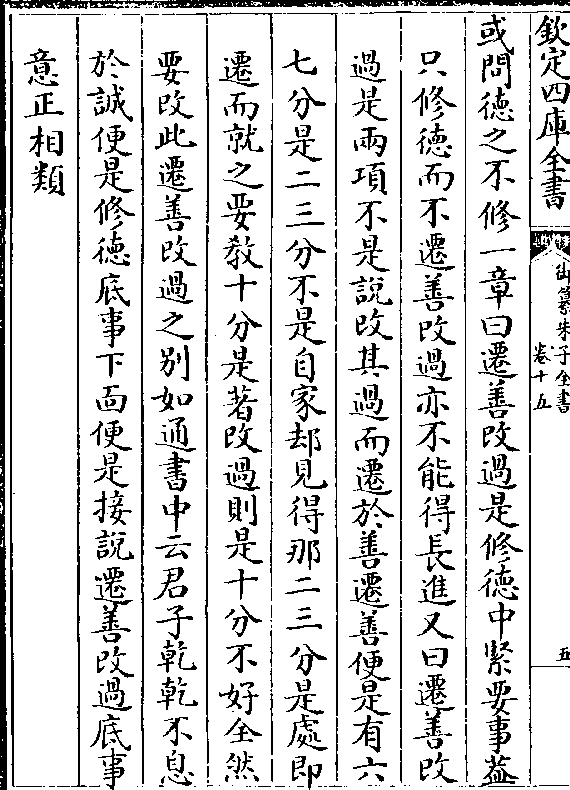 欽定四庫全書
御纂朱子全書
卷十五
五
或問德之不修一章曰遷善改過是修德中緊要事葢
只修德而不遷善改過亦不能得長進又曰遷善改
過是兩項不是說改其過而遷於善遷善便是有六
七分是二三分不是自家却見得那二三分是處即
遷而就之要教十分是著改過則是十分不好全然
要改此遷善改過之别如通書中云君子乾乾不息
於誠便是修德底事下面便是接說遷善改過底事
意正相類